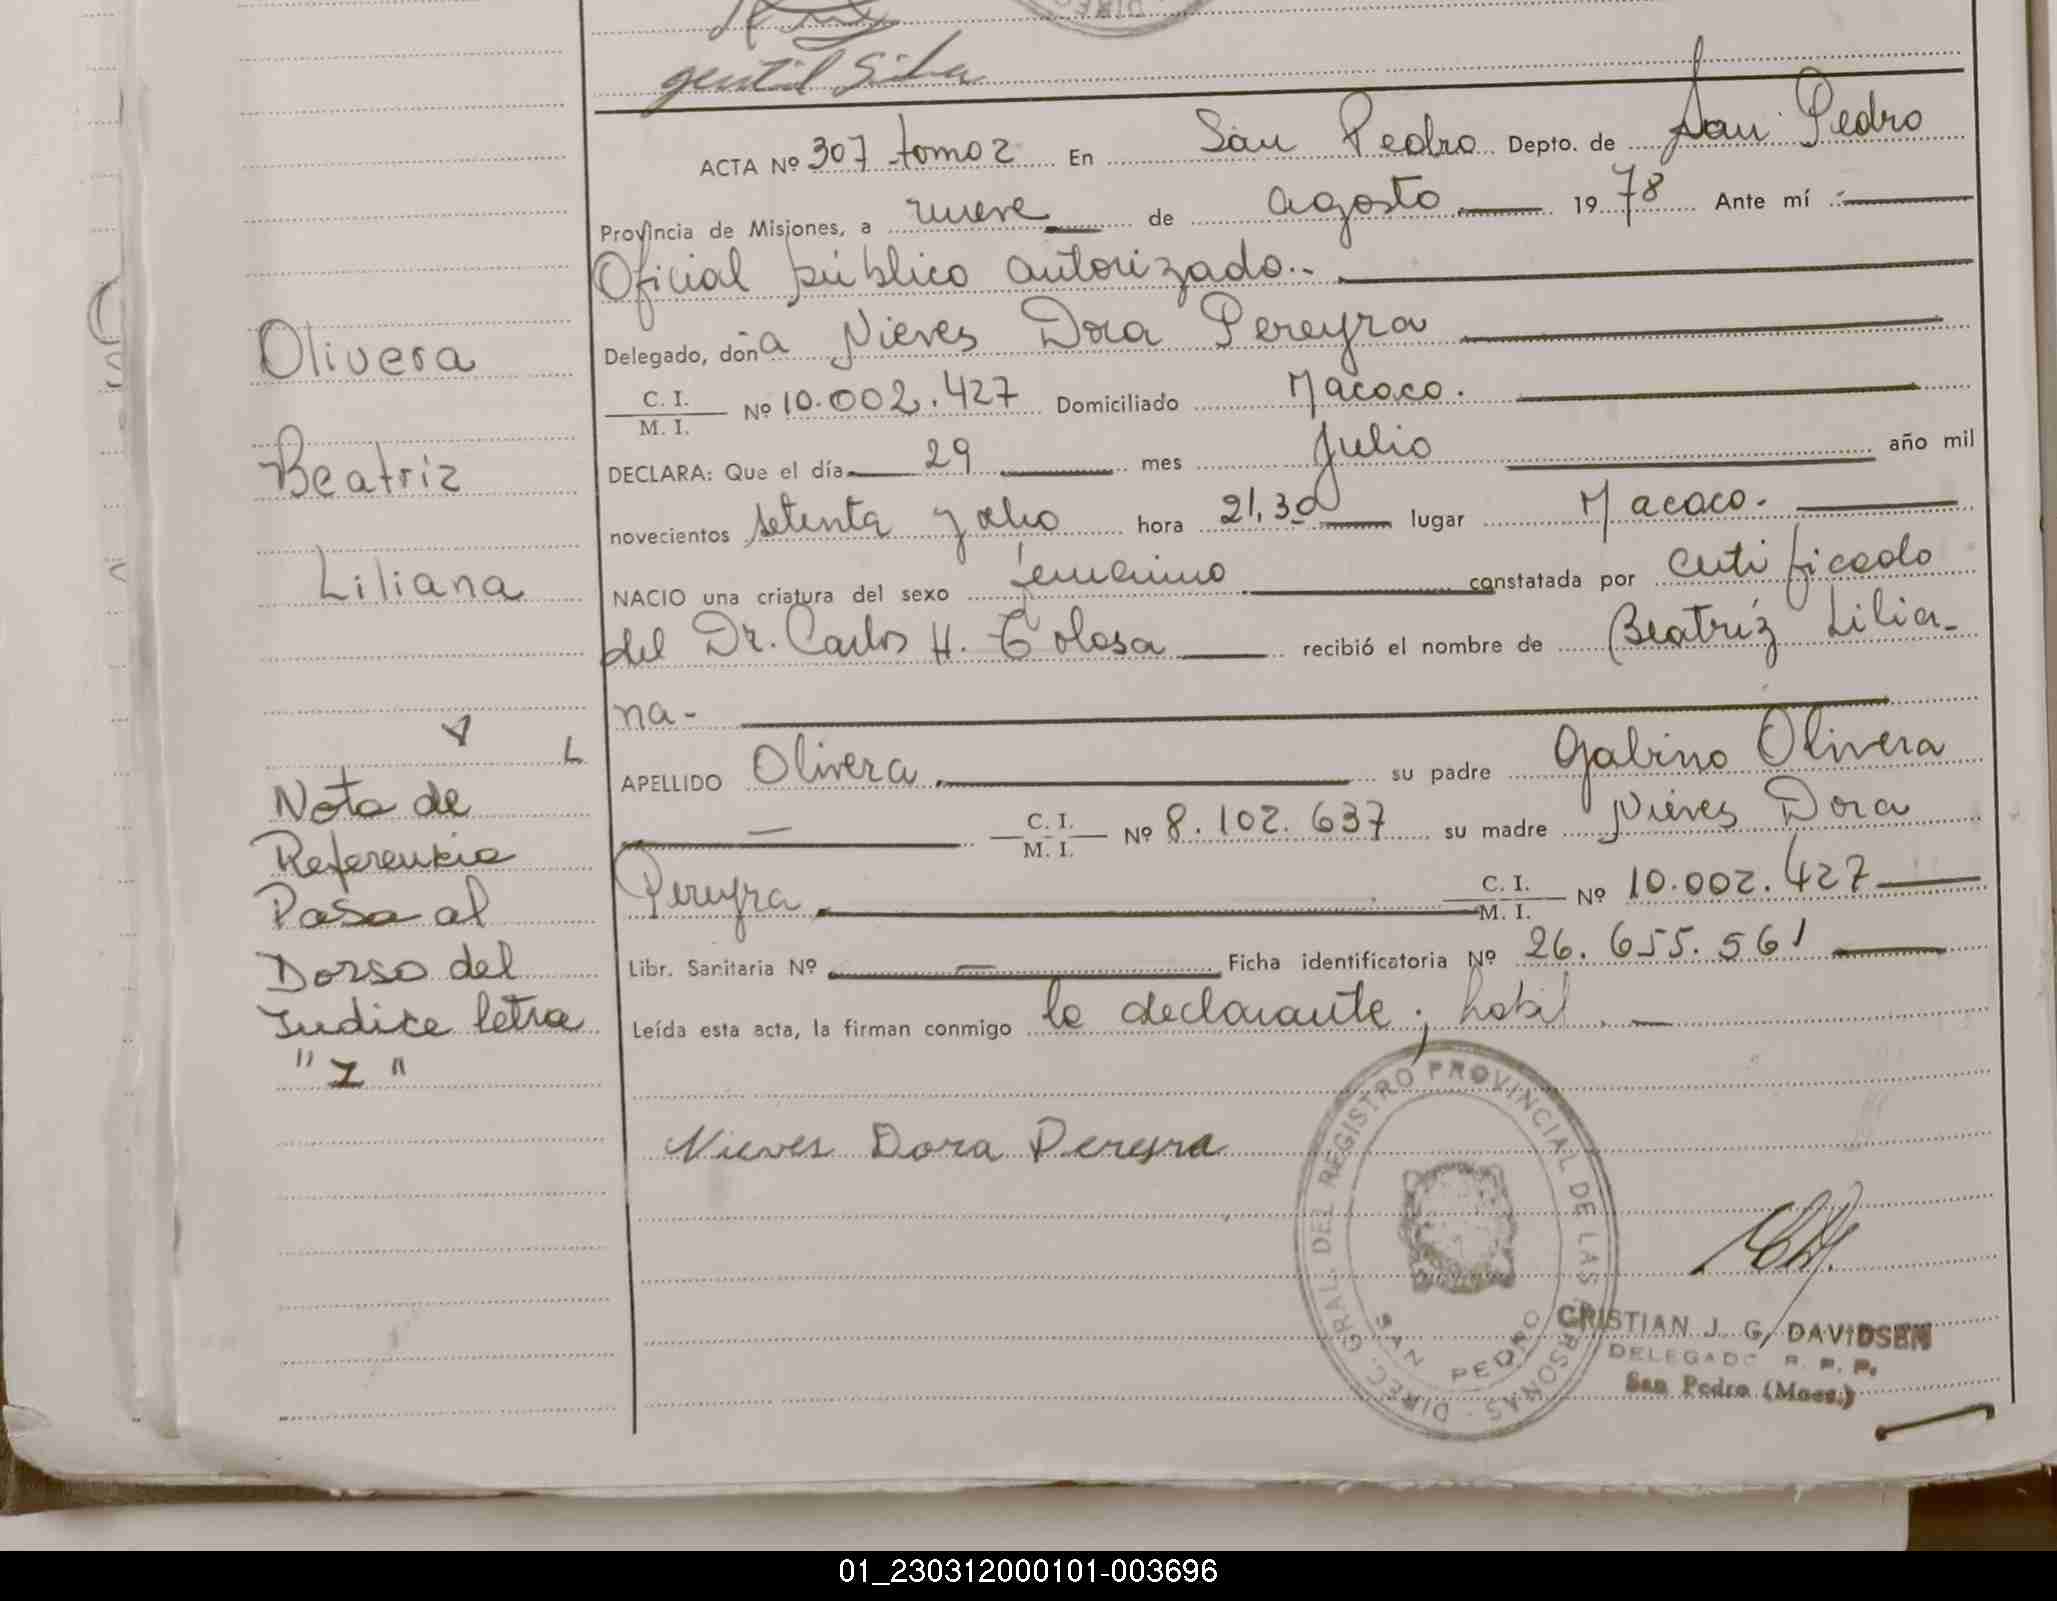 gentil Silva
ACTA Nº 307 tomo 2 En San Pedro Depto. de San Pedro
Provincia de Misiones, a nueve de agosto 1978 Ante mí :
Oficial público autorizado..
Delegado, don a Nieves Dora Pereyra
C. I.
M. I. Nº 10.002.427 Domiciliado Macaco.
DECLARA: Que el día 29 mes Julio año mil
novecientos setenta y ocho hora 21,30 lugar Macaco.
NACIO una criatura del sexo femenino constatada por certificado
del Dr. Carlos H. Tolosa recibió el nombre de Beatríz Lilia-
na-
APELLIDO Olivera su padre Gabino Olivera
C. I.
M. I. Nº 8.102.637 su madre Nieves Dora
Pereyra C. I.
M. I. Nº 10.002.427
Libr. Sanitaria Nº — Ficha identificatoria Nº 26.655.561
Leída esta acta, la firman conmigo la declarante; habil.
Nieves Dora Pereyra
Olivera
Beatriz
Liliana
Nota de
Referencia
Pasa al
Dorso del
Indice letra
"I"
DIREC. GRAL. DEL REGISTRO PROVINCIAL DE LAS PERSONAS -
SAN PEDRO
CRISTIAN J. G. DAVIDSEN
DELEGADO R. P. P.
San Pedro (Mnes.)
01_230312000101-003696